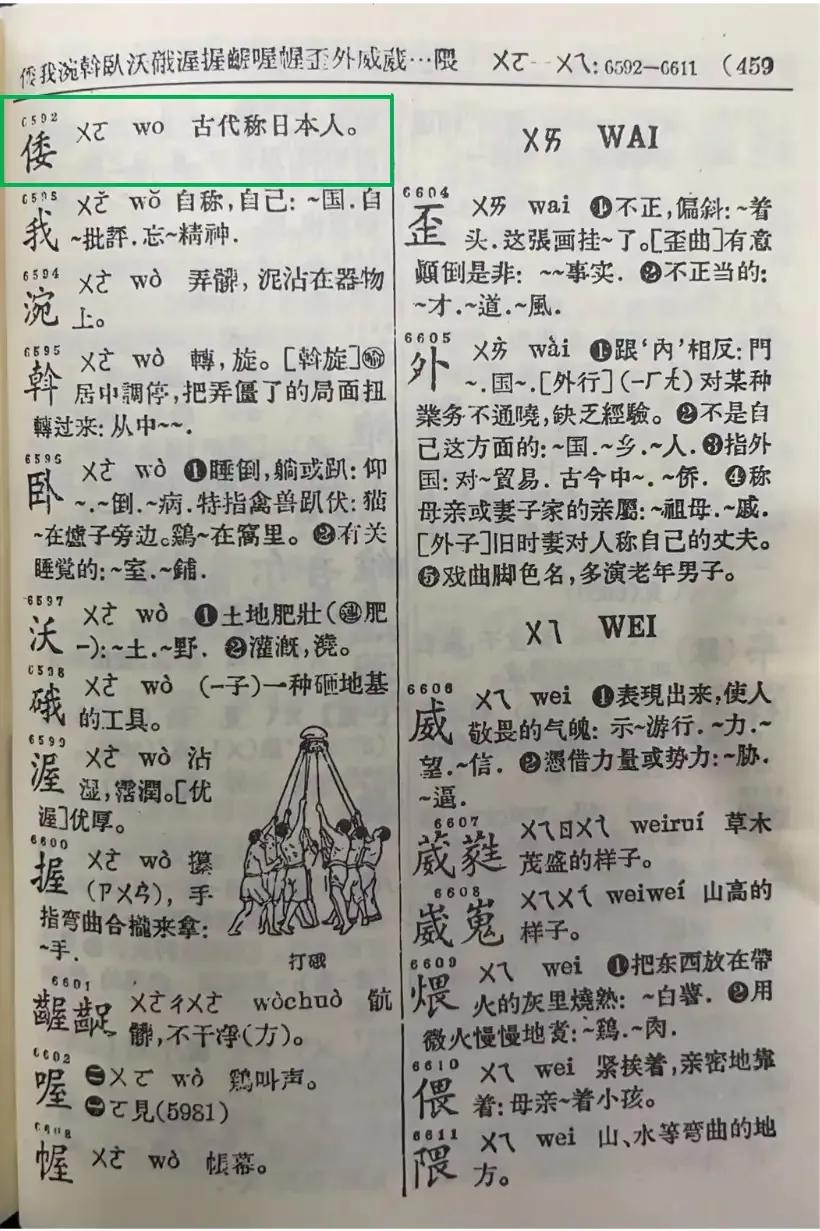 倭我涴斡臥沃硪渥握齷喔幄歪外威葳…隈　ㄨㄛ—ㄨㄟ: 6592—6611　(459
6592
倭 ㄨㄛ wo 古代称日本人。
我 ㄨㄛˇ wǒ 自称,自己: ~国.自
~批評.忘~精神.
6594
涴 ㄨㄛˋ wò 弄髒, 泥沾在器物
上。
6595
斡 ㄨㄛˋ wò 轉, 旋。[斡旋]㊣
居中調停,把弄僵了的局面扭
轉过来: 从中~~.
臥 ㄨㄛˋ wò ❶睡倒,躺或趴: 仰
~.~倒.~病.特指禽兽趴伏: 猫
~在爐子旁边。鷄~在窩里。❷有关
睡觉的: ~室.~鋪.
6597
沃 ㄨㄛˋ wò ❶土地肥壯(㊣肥
—): ~土.~野. ❷灌漑,澆。
6598
硪 ㄨㄛˋ wò (—子)一种砸地基
的工具。
6599
渥 ㄨㄛˋ wò 沾
湿, 霑潤。[优
渥]优厚。
6600
握 ㄨㄛˋ wò 攥
(ㄗㄨㄢˋ), 手
指弯曲合攏来拿:
~手.
打硪
6601
齷齪 ㄨㄛˋㄔㄨㄛˋ wòchuò 骯
髒,不干凈(方)。
6602
喔 ㊀ㄨㄛ wò 鷄叫声。
㊁ㄛ見(5981)
幄 ㄨㄛˋ wò 帳幕。
ㄨㄞ WAI
6604
歪 ㄨㄞ wai ❶不正,偏斜: ~着
头. 这張画挂~了。[歪曲]有意
顚倒是非: ~~事实. ❷不正当的:
~才.~道.~風.
6605
外 ㄨㄞˋ wài ❶跟‘內’相反: 門
~.国~.[外行](—ㄏㄤˊ)对某种
業务不通嘵,缺乏經驗。❷不是自
己这方面的: ~国.~乡.~人. ❸指外
国: 对~貿易. 古今中~.~侨. ❹称
母亲或妻子家的亲屬: ~祖母.~戚.
[外子]旧时妻对人称自己的丈夫。
❺戏曲脚色名, 多演老年男子。
ㄨㄟ WEI
6606
威 ㄨㄟ wei ❶表現出来,使人
敬畏的气魄: 示~游行. ~力.~
望.~信. ❷凴借力量或势力: ~胁.
~逼.
6607
葳蕤 ㄨㄟㄖㄨㄟˊ weiruí 草木
茂盛的样子。
6608
崴嵬 ㄨㄟㄨㄟˊ weiweí 山高的
样子。
6609
煨 ㄨㄟ wei ❶把东西放在帶
火的灰里燒熟: ~白薯. ❷用
微火慢慢地煑: ~鷄.~肉.
6610
偎 ㄨㄟ wei 紧挨着,亲密地靠
着: 母亲~着小孩。
6611
隈 ㄨㄟ wei 山、水等弯曲的地
方。